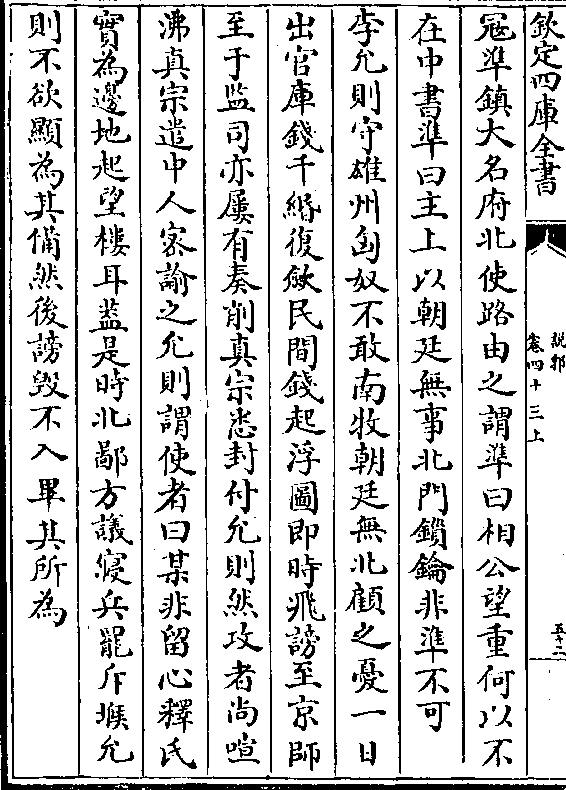 欽定四庫全書
說郛
卷四十三上
五十二
冦準鎮大名府北使路由之謂準曰相公望重何以不
在中書準曰主上以朝廷無事北門鎖鑰非準不可
李允則守雄州匈奴不敢南牧朝廷無北顧之憂一日
出官庫錢千緡復斂民間錢起浮圖即時飛謗至京師
至于監司亦屢有奏削真宗悉封付允則然攻者尚喧
沸真宗遣中人宻諭之允則謂使者曰某非留心釋氏
實為邊地起望樓耳蓋是時北鄙方議寢兵罷斥堠允
則不欲顯為其備然後謗毁不入畢其所為